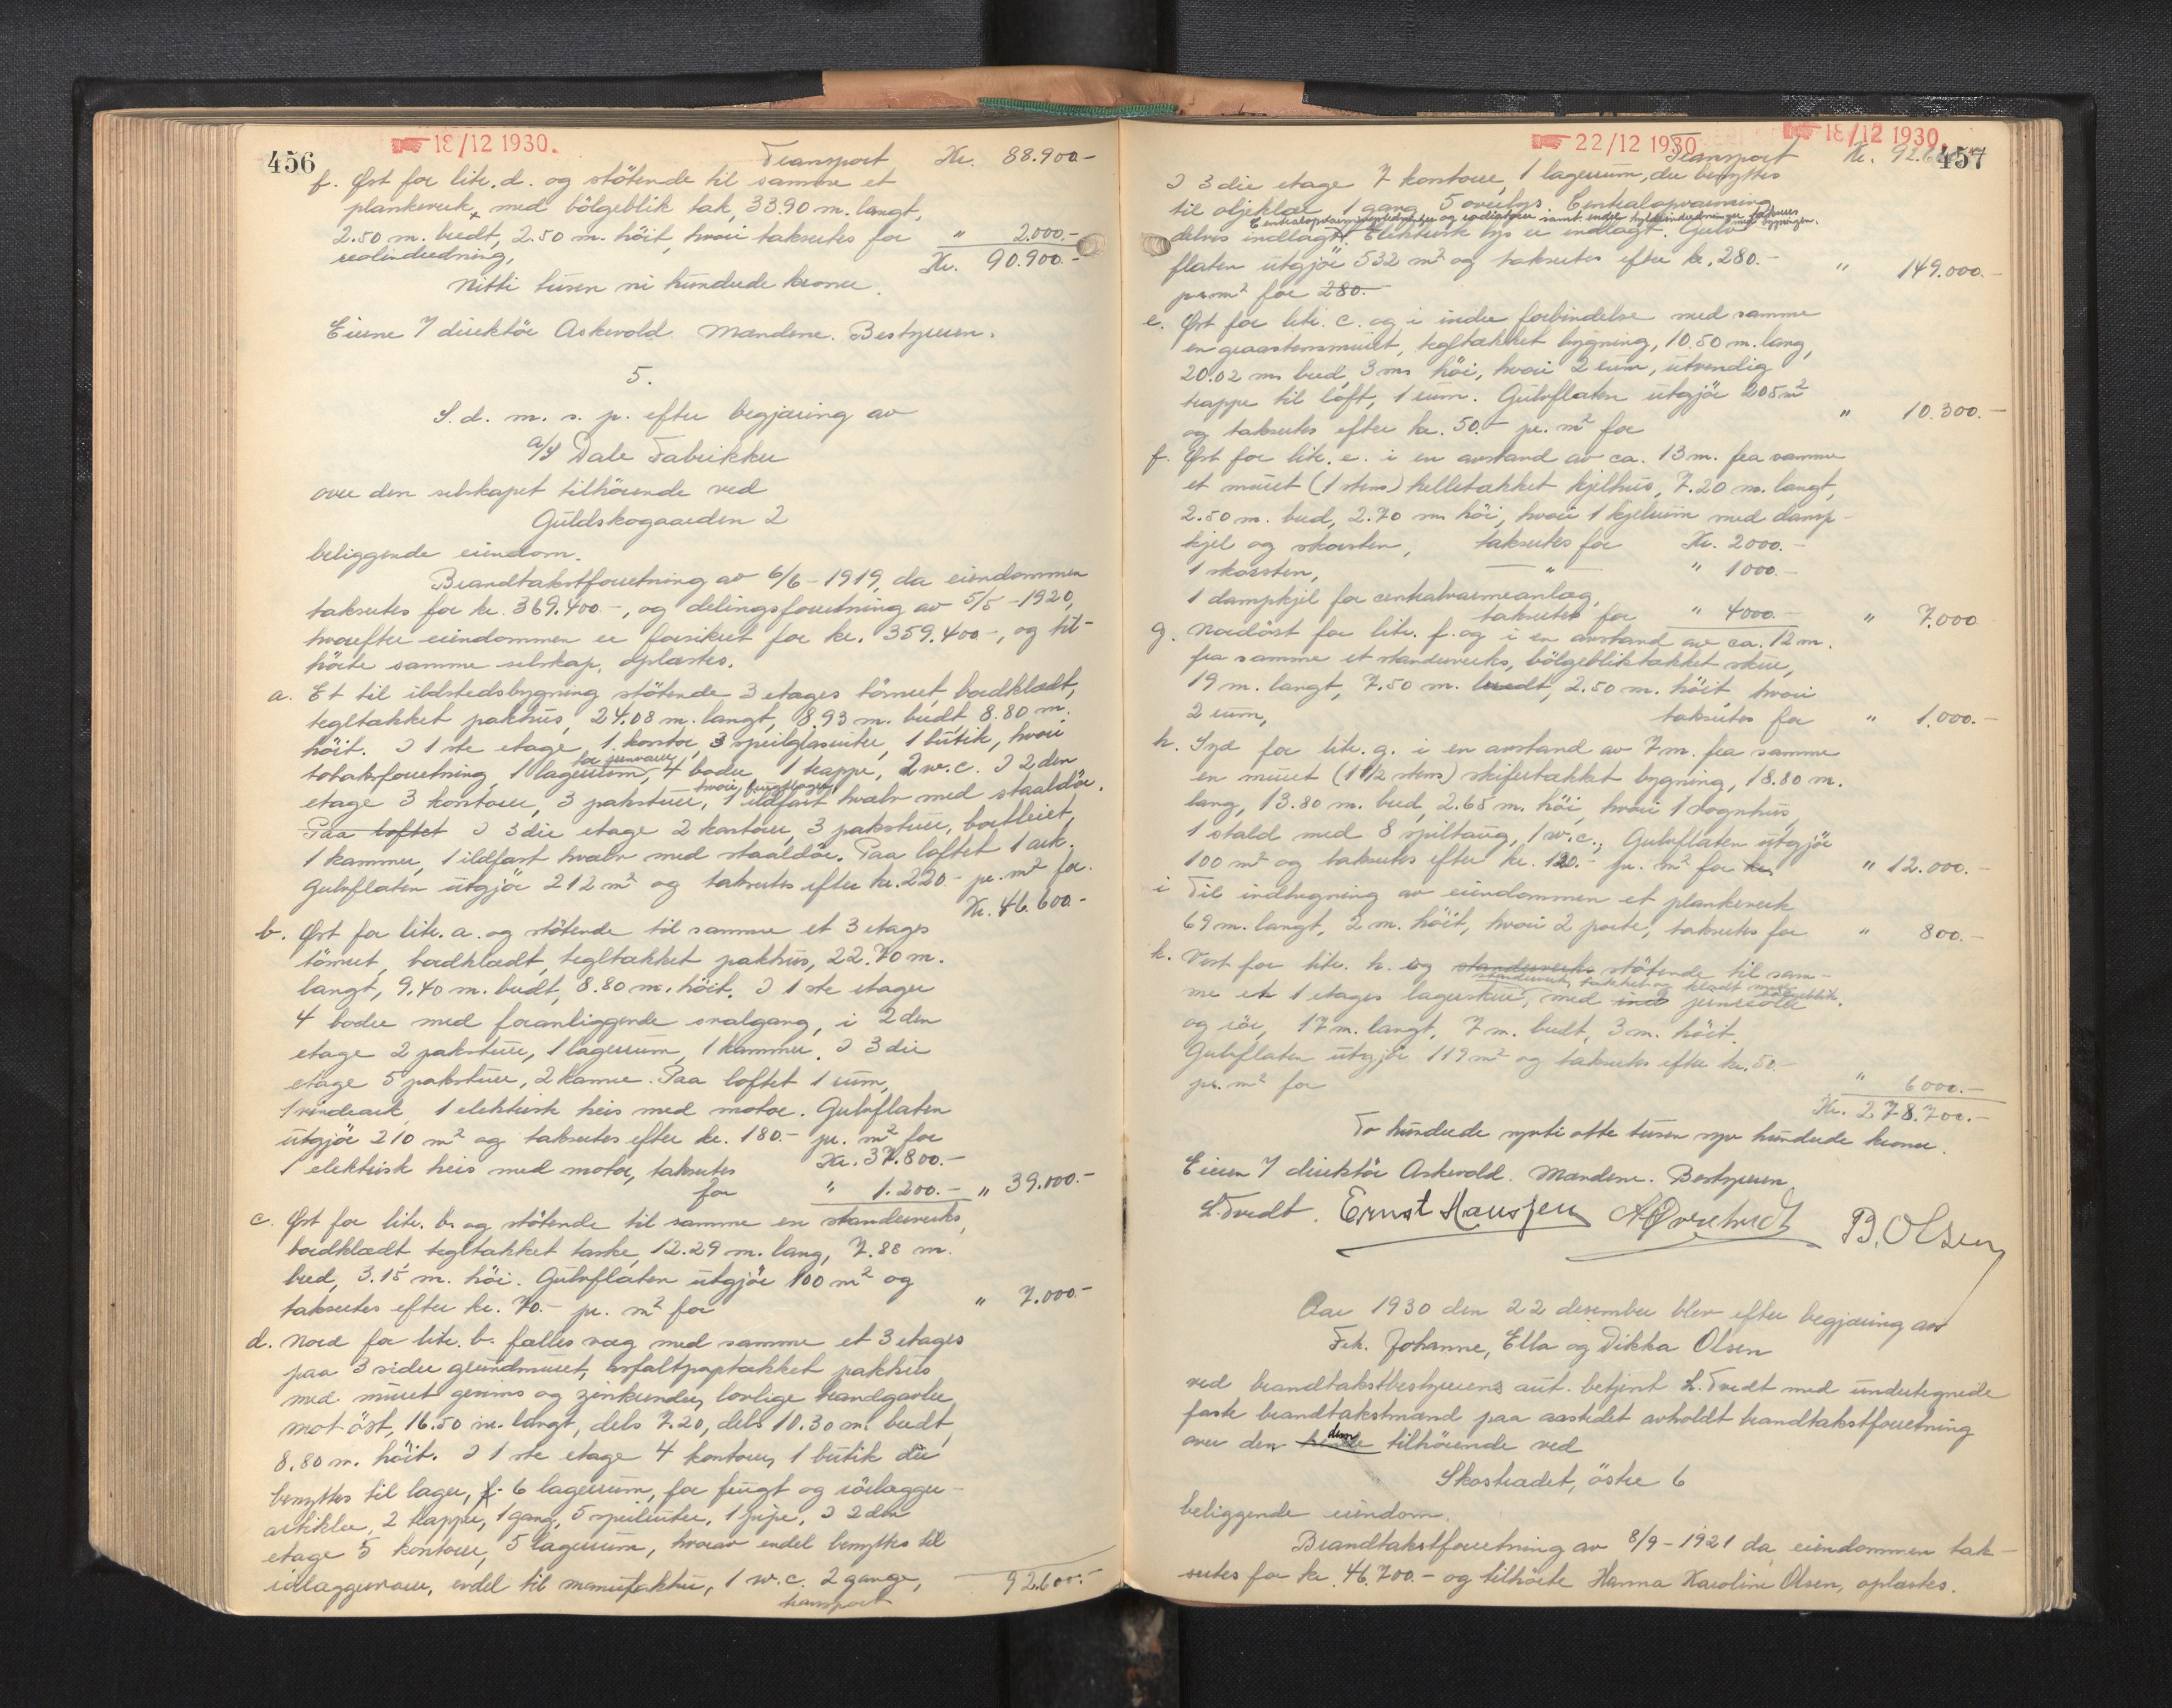 456
18/12 1930.
Transport Kr. 88.900-
f. Øst for litr. d. og stötende til samme et
plankeverk, med bölgeblik tak, 33.90 m. langt,
2.50 m. bredt, 2.50 m. höit, hvori takseres for " 2.000.-
reolindredning,
Kr. 90.900.-
Nitti tusen ni hundrede kroner.
Eieren v/ direktör Askevold. Mændene. Bestyreren.
5.
S. d. m. s. p. efter begjæring av
A/S Dale Fabrikker
over den selskapet tilhörende ved
Guldskogaarden 2
beliggende eiendom.
Brandtakstforretning av 6/6-1919, da eiendommen
taksertes for kr. 369.400-, og delingsforretning av 5/5-1920,
hvorefter eiendommen er forsikret for kr. 359.400-, og til-
hörte samme selskap, oplæstes.
a. Et til ildstedsbygning stötende 3 etages törmet, bordklædt,
tegltækket pakhus, 24.08 m. langt, 8.93 m. bredt, 8.80 m.
höit. I 1ste etage, 1 kontor, 3 speilglasruter, 1 butik, hvori
for jernvarer
totaksforretning, 1 lagerrum, 4 boder, 1 trappe, 2 w.c. I 2den
etage 3 kontorer, 3 pakstuer, 1 ildfast hvælv med staaldör.
Paa loftet I 3die etage 2 kontorer, 3 pakstuer, bortleiet,
1 kammer, 1 ildfast hvælv med staaldör. Paa loftet 1 ark.
Gulvflaten utgjör 212 m² og takseres efter kr. 220.- pr. m² for
Kr. 46.600.-
b. Øst for litr. a. og stötende til samme et 3 etages
törmet, bordklædt, tegltækket pakhus, 22.70 m.
langt, 9.40 m. bredt, 8.80 m. höit. I 1ste etager
4 boder med foranliggende svalgang, i 2den
etage 2 pakstuer, 1 lagerrum, 1 kammer. I 3die
etage 5 pakstuer, 2 kamre. Paa loftet 1 rum,
1 vindeark, 1 elektrisk heis med motor. Gulvflaten
utgjör 210 m² og takseres efter kr. 180.- pr. m² for
Kr. 37.800.-
1 elektrisk heis med motor, takseres
for " 1.200.- " 39.000.-
c. Øst for litr. b. og stötende til samme en standerverks,
bordklædt tegltækket taske, 12.29 m. lang, 7.88 m.
bred, 3.15 m. höi. Gulvflaten utgjör 100 m² og
takseres efter kr. 70.- pr. m² for " 7.000.-
d. Nord for litr. b. fælles væg med samme et 3 etages
paa 3 sider grundmuret, asfaltpaptækket pakhus
med muret gesims og zinkrender, lovlige brandgavler
mot öst, 16.50 m. langt, dels 7.20, dels 10.30 m. bredt,
8.80 m. höit. I 1ste etage 4 kontorer, 1 butik der
benyttes til lager, 6 lagerrum, for frugt og rörlægger-
artikler, 2 trapper, 1 gang, 5 speilruter, 1 pipe. I 2den
etage 5 kontorer, 5 lagerrum, hvorav endel benyttes til
rörlæggervarer, endel til manufaktur, 1 w.c. 2 gange,
transport 92.600.-
22/12 1930
18/12 1930.
457
Transport Kr. 92.600.-
I 3die etage 7 kontorer, 1 lagerrum, der benyttes
til oljeklær, 1 gang, 5 overlys. Centralopvarmning
Centralopvarmningsledninger og radiatorer samt endel hyldeindredninger takseres med bygningen.
delvis indlagt. Elektrisk lys er indlagt. Gulv-
flaten utgjör 532 m² og takseres efter kr. 280.-
pr. m² for 280.- " 149.000.-
e. Øst for litr. c. og i indre forbindelse med samme
en graastensmuret, tegltækket bygning, 10.50 m. lang,
20.02 m. bred, 3 m. höi, hvori 2 rum, utvendig
trappe til loft, 1 rum. Gulvflaten utgjör 205 m²
og takseres efter kr. 50.- pr. m² for " 10.300.-
f. Øst for litr. e. i en avstand av ca. 13 m. fra samme
et muret (1 stens) helletækket kjelhus, 7.20 m. langt,
2.50 m. bred, 2.70 m. höi, hvori 1 kjelrum med damp-
kjel og skorsten, takseres for Kr. 2000.-
1 skorsten, — " — " 1000.-
1 dampkjel for centralvarmeanlæg,
takseres for " 4000.- " 7.000
g. Nordöst for litr. f. og i en avstand av ca. 12 m.
fra samme et standerverks, bölgebliktækket skur,
19 m. langt, 7.50 m. bredt, 2.50 m. höit, hvori
2 rum, takseres for " 1.000.-
h. Syd for litr. g. i en avstand av 7 m. fra samme
en muret (1 1/2 stens) skifertækket bygning, 18.80 m.
lang, 13.80 m. bred, 2.65 m. höi, hvori 1 vognhus,
1 stald med 8 spiltaug, 1 w.c., Gulvflaten utgjör
100 m² og takseres efter kr. 120.- pr. m² for kr. " 12.000.-
i Til indhegning av eiendommen et plankeverk
69 m. langt, 2 m. höit, hvori 2 porter, takseres for " 800.-
k. Vest for litr. h. og standerverks stötende til sam-
standerverks, takket og klædt med bölgeblik.
me et 1 etages lagerskur, med jernreoler
og rör, 17 m. langt, 7 m. bredt, 3 m. höit.
Gulvflaten utgjör 119 m² og takseres efter kr. 50.-
pr. m² for " 6000.-
Kr. 278.700.-
To hundrede sytti otte tusen syv hundrede kroner.
Eieren v/ direktör Askevold. Mændene. Bestyreren
L. Tvedt. Ernst Hanssen B. Olsen
Aar 1930 den 22 desember blev efter begjæring av
Frk. Johanne, Ella og Dikka Olsen
ved brandtakstbestyrerens aut. betjent L. Tvedt med undertegnede
faste brandtakstmænd paa aastedet avholdt brandtakstforretning
over den dem tilhörende ved
Skostrædet, östre 6
beliggende eiendom.
Brandtakstforretning av 8/9-1921 da eiendommen tak-
sertes for kr. 46.700.- og tilhörte Hanna Karoline Olsen, oplæstes.